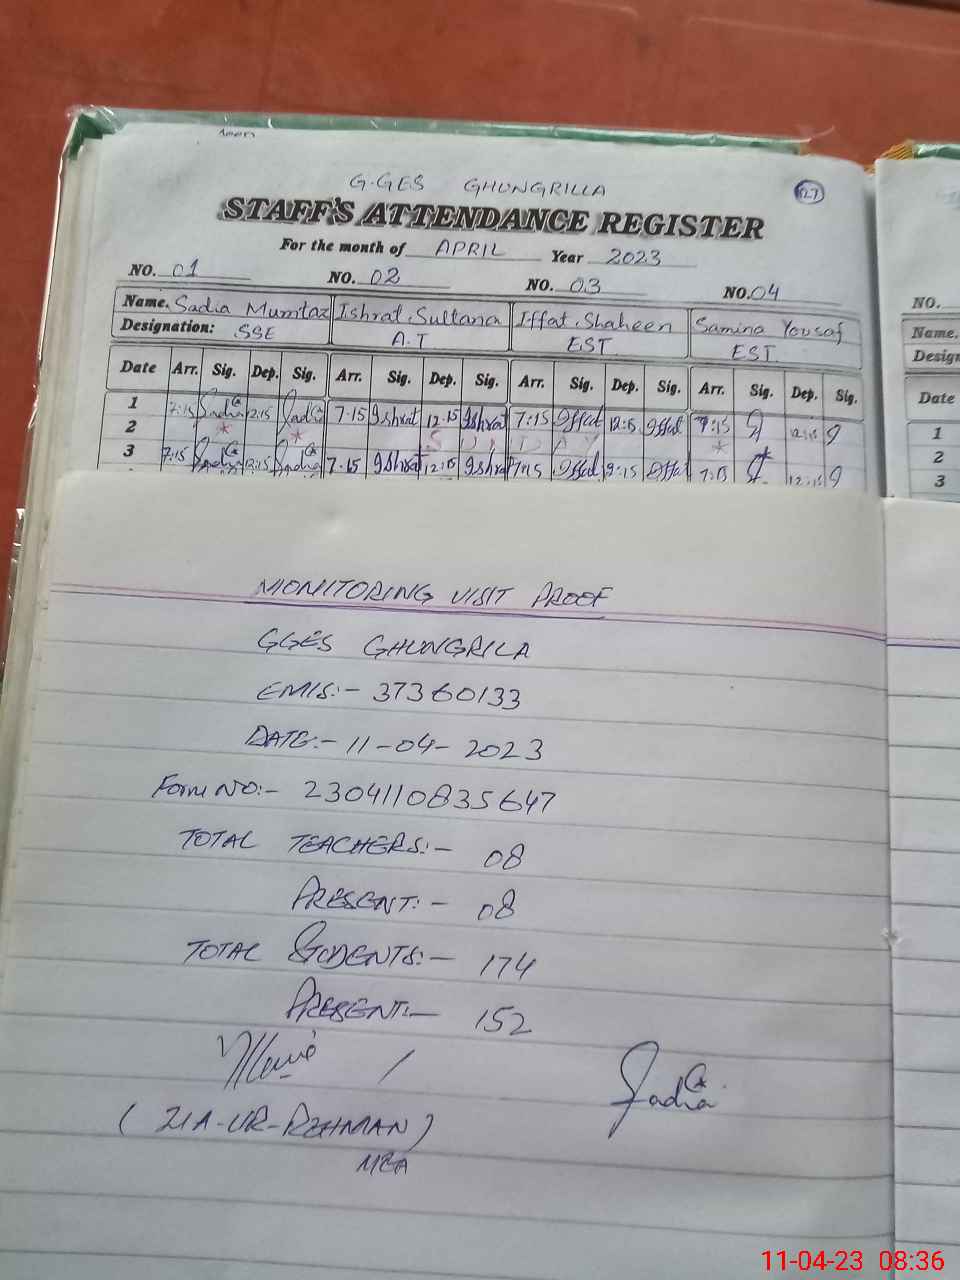 G.GES GHUNGRILLA
127
STAFF'S ATTENDANCE REGISTER
For the month of APRIL Year 2023
NO. 01 NO. 02 NO. 03 NO. 04
NO.
Name. Sadia Mumtaz Ishrat. Sultana Iffat. Shaheen Samina Yousaf
Name.
Designation: SSE A.T EST. EST.
Date Arr. Sig. Dep. Sig. Arr. Sig. Dep. Sig. Arr. Sig. Dep. Sig. Arr. Sig. Dep. Sig.
Date
1 7:15 Sadia 12:15 Sadia 7.15 Ishrat 12.15 Ishrat 7:15 Iffat 12:15 Iffat 7:15 12:15
1
2 S U N D A Y
2
3 7:15 Sadia 12:15 Sadia 7.15 Ishrat 12:15 Ishrat 7:15 Iffat 12:15 Iffat 7:15 12:15
3
MONITORING VISIT PROOF
GGES GHUNGRILA
EMIS:- 37360133
DATE:- 11-04-2023
Form NO:- 2304110835647
TOTAL TEACHERS:- 08
PRESENT:- 08
TOTAL STUDENTS:- 174
PRESENT:- 152
Sadia
(ZIA-UR-REHMAN)
MEA
11-04-23 08:36